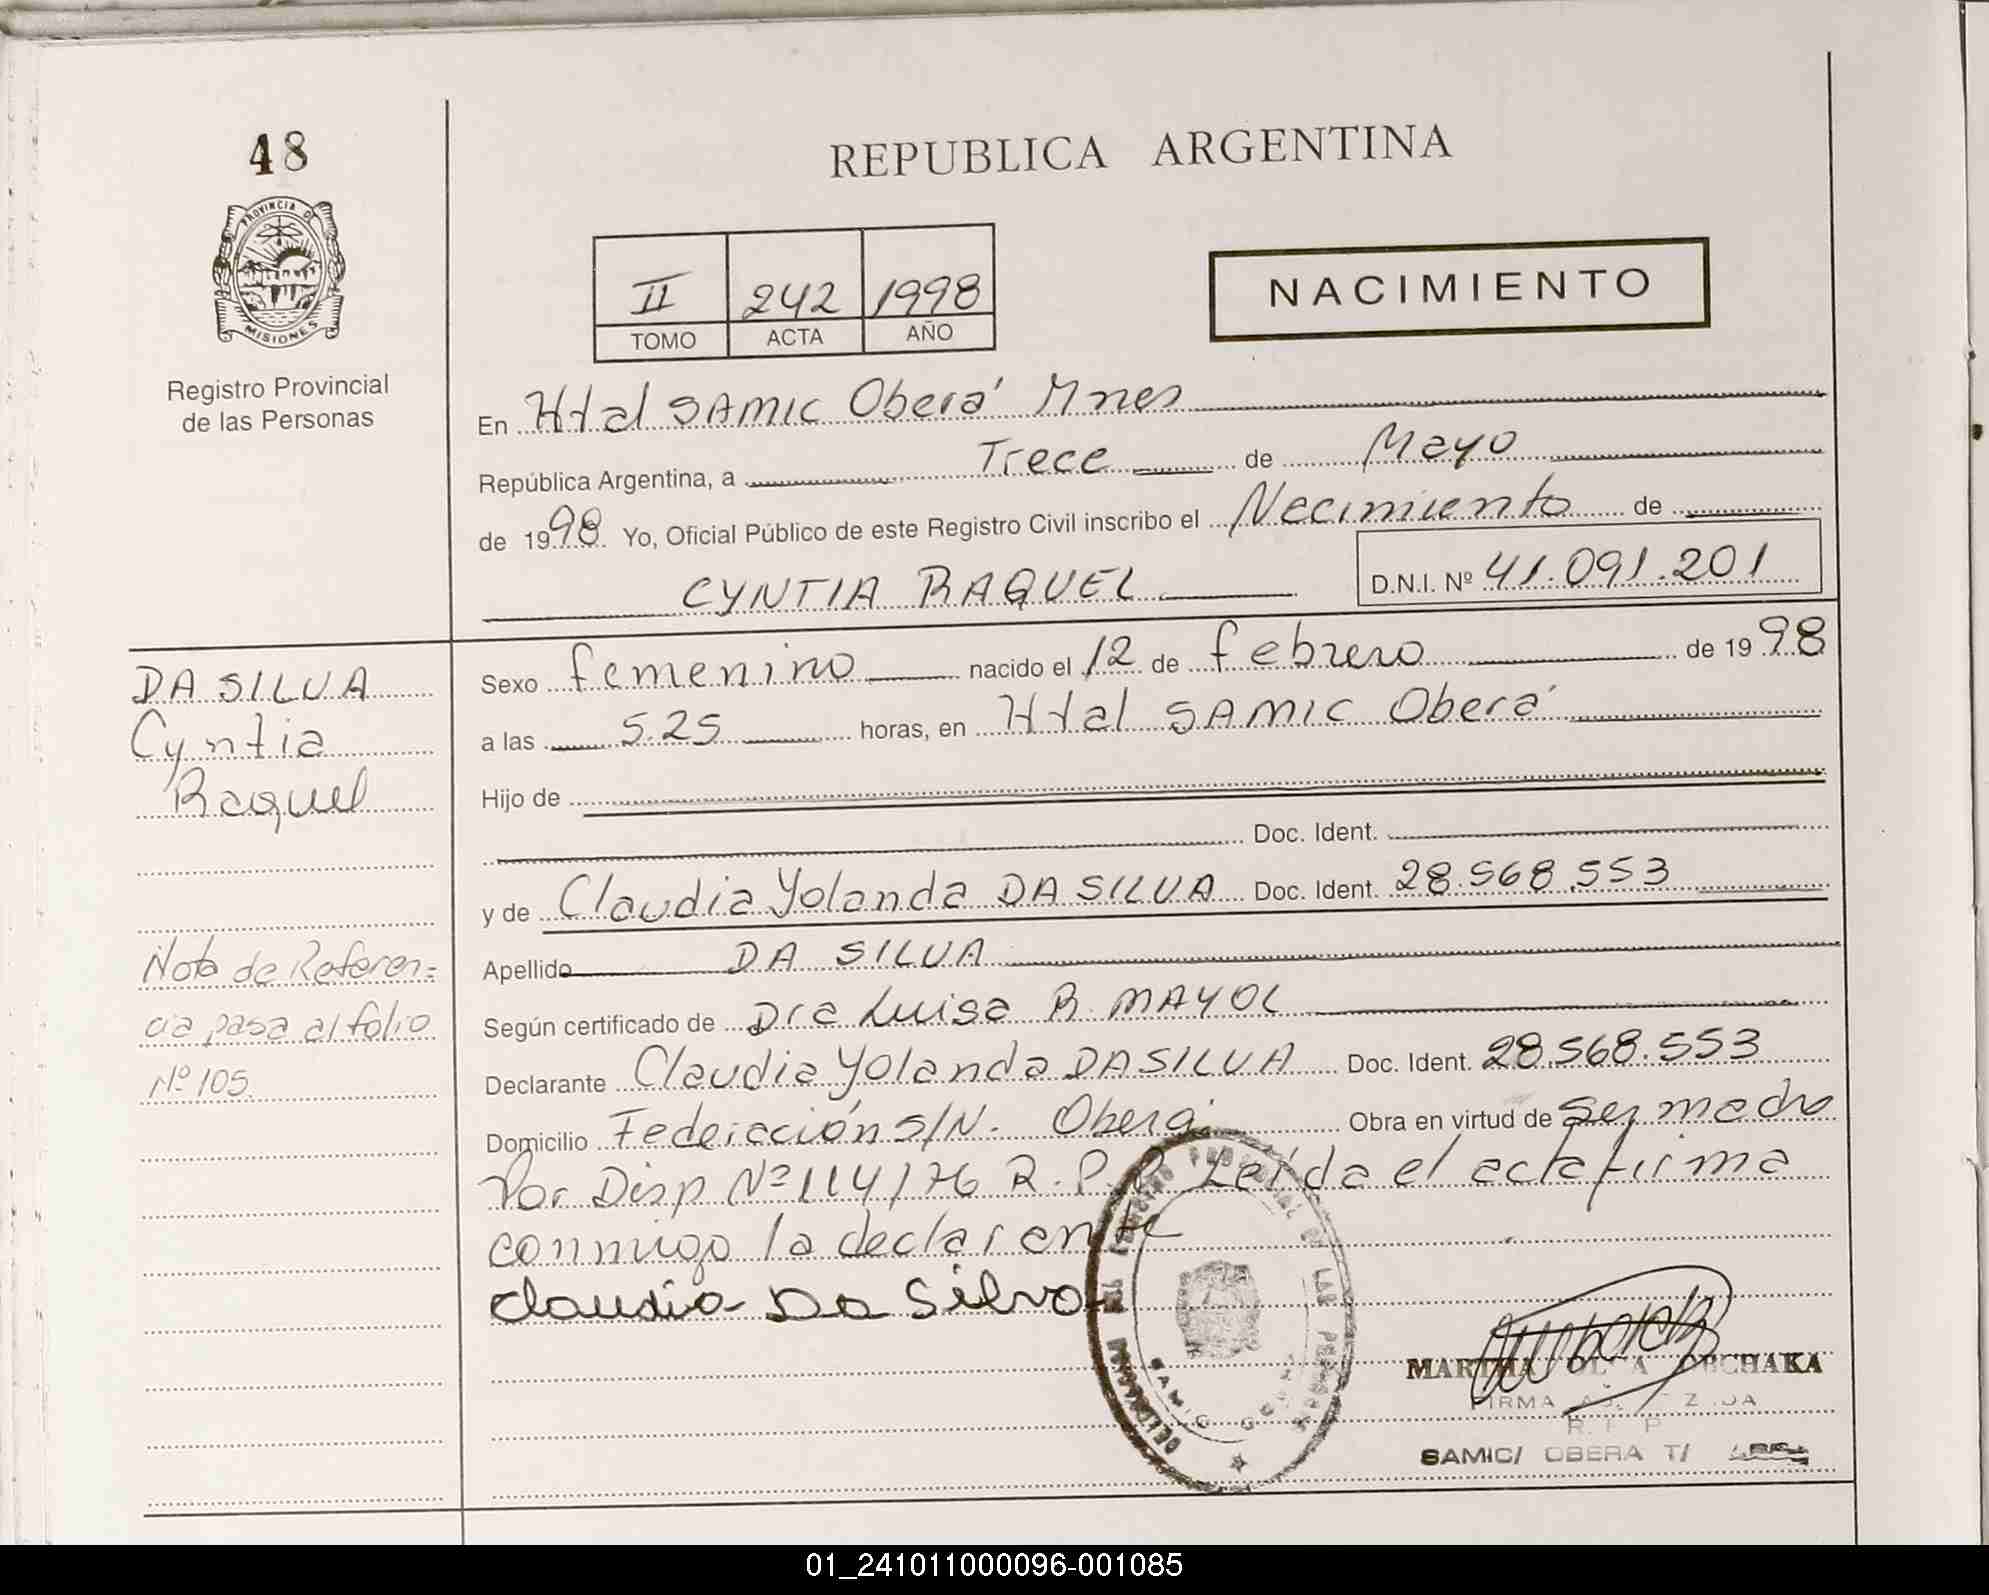 48
REPUBLICA ARGENTINA
PROVINCIA DE
MISIONES
Registro Provincial
de las Personas
II 242 1998
TOMO ACTA AÑO
NACIMIENTO
En Htal SAMIC Oberá Mnes
República Argentina, a Trece de Mayo
de 1998 Yo, Oficial Público de este Registro Civil inscribo el Nacimiento de
CYNTIA RAQUEL D.N.I. Nº 41.091.201
DA SILVA
Cyntia
Raquel
Nota de Referen=
cia pasa al folio
Nº 105.
Sexo femenino nacido el 12 de febrero de 1998
a las 5.25 horas, en Htal SAMIC Oberá
Hijo de
Doc. Ident.
y de Claudia Yolanda DA SILVA Doc. Ident. 28.568.553
Apellido DA SILVA
Según certificado de Dra Luisa R. MAYOL
Declarante Claudia Yolanda DA SILVA Doc. Ident. 28.568.553
Domicilio Federación S/N. Oberá Obra en virtud de ser madre
Por Disp Nº 114/76 R.P.P. Leída el acta firma
conmigo la declarante
Claudia Da Silva
MARTHA
SAMIC/ OBERA T/
01_241011000096-001085